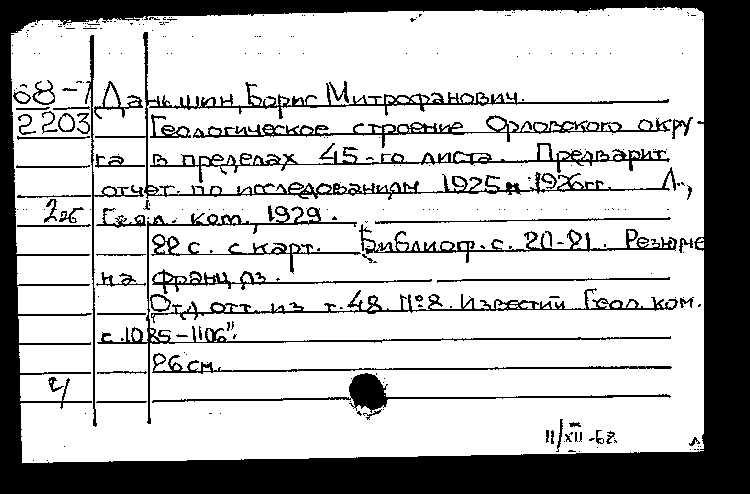 68-7 Даньшин, Борис Митрофанович.
2203 Геологическое строение Орловского окру-
га в пределах 45-го листа. Предварит.
отчет. по исследованиям 1925 и 1926 гг. Л.,
2эк Геол. ком., 1929.
22 с. с карт. Библиогр. с. 20-21. Резюме
на франц. яз.
Отд. отт. из т. 48. №8. Известий Геол. ком.
с. 1085-1106".
26 см.
11/XII-68